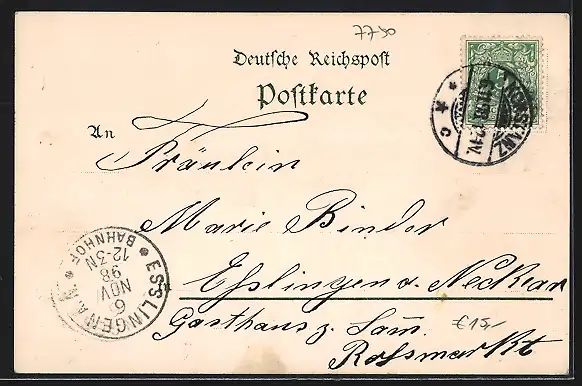 7730
Deutsche Reichspost
Postkarte
An
Fräulein
Marie Binder
in Esslingen a. Neckar
Gasthaus z. Lam̄
Rossmarkt
€ 15,-
KONSTANZ
C
ESSLINGEN A. N.
BAHNHOF
6
NOV
98
12-3N